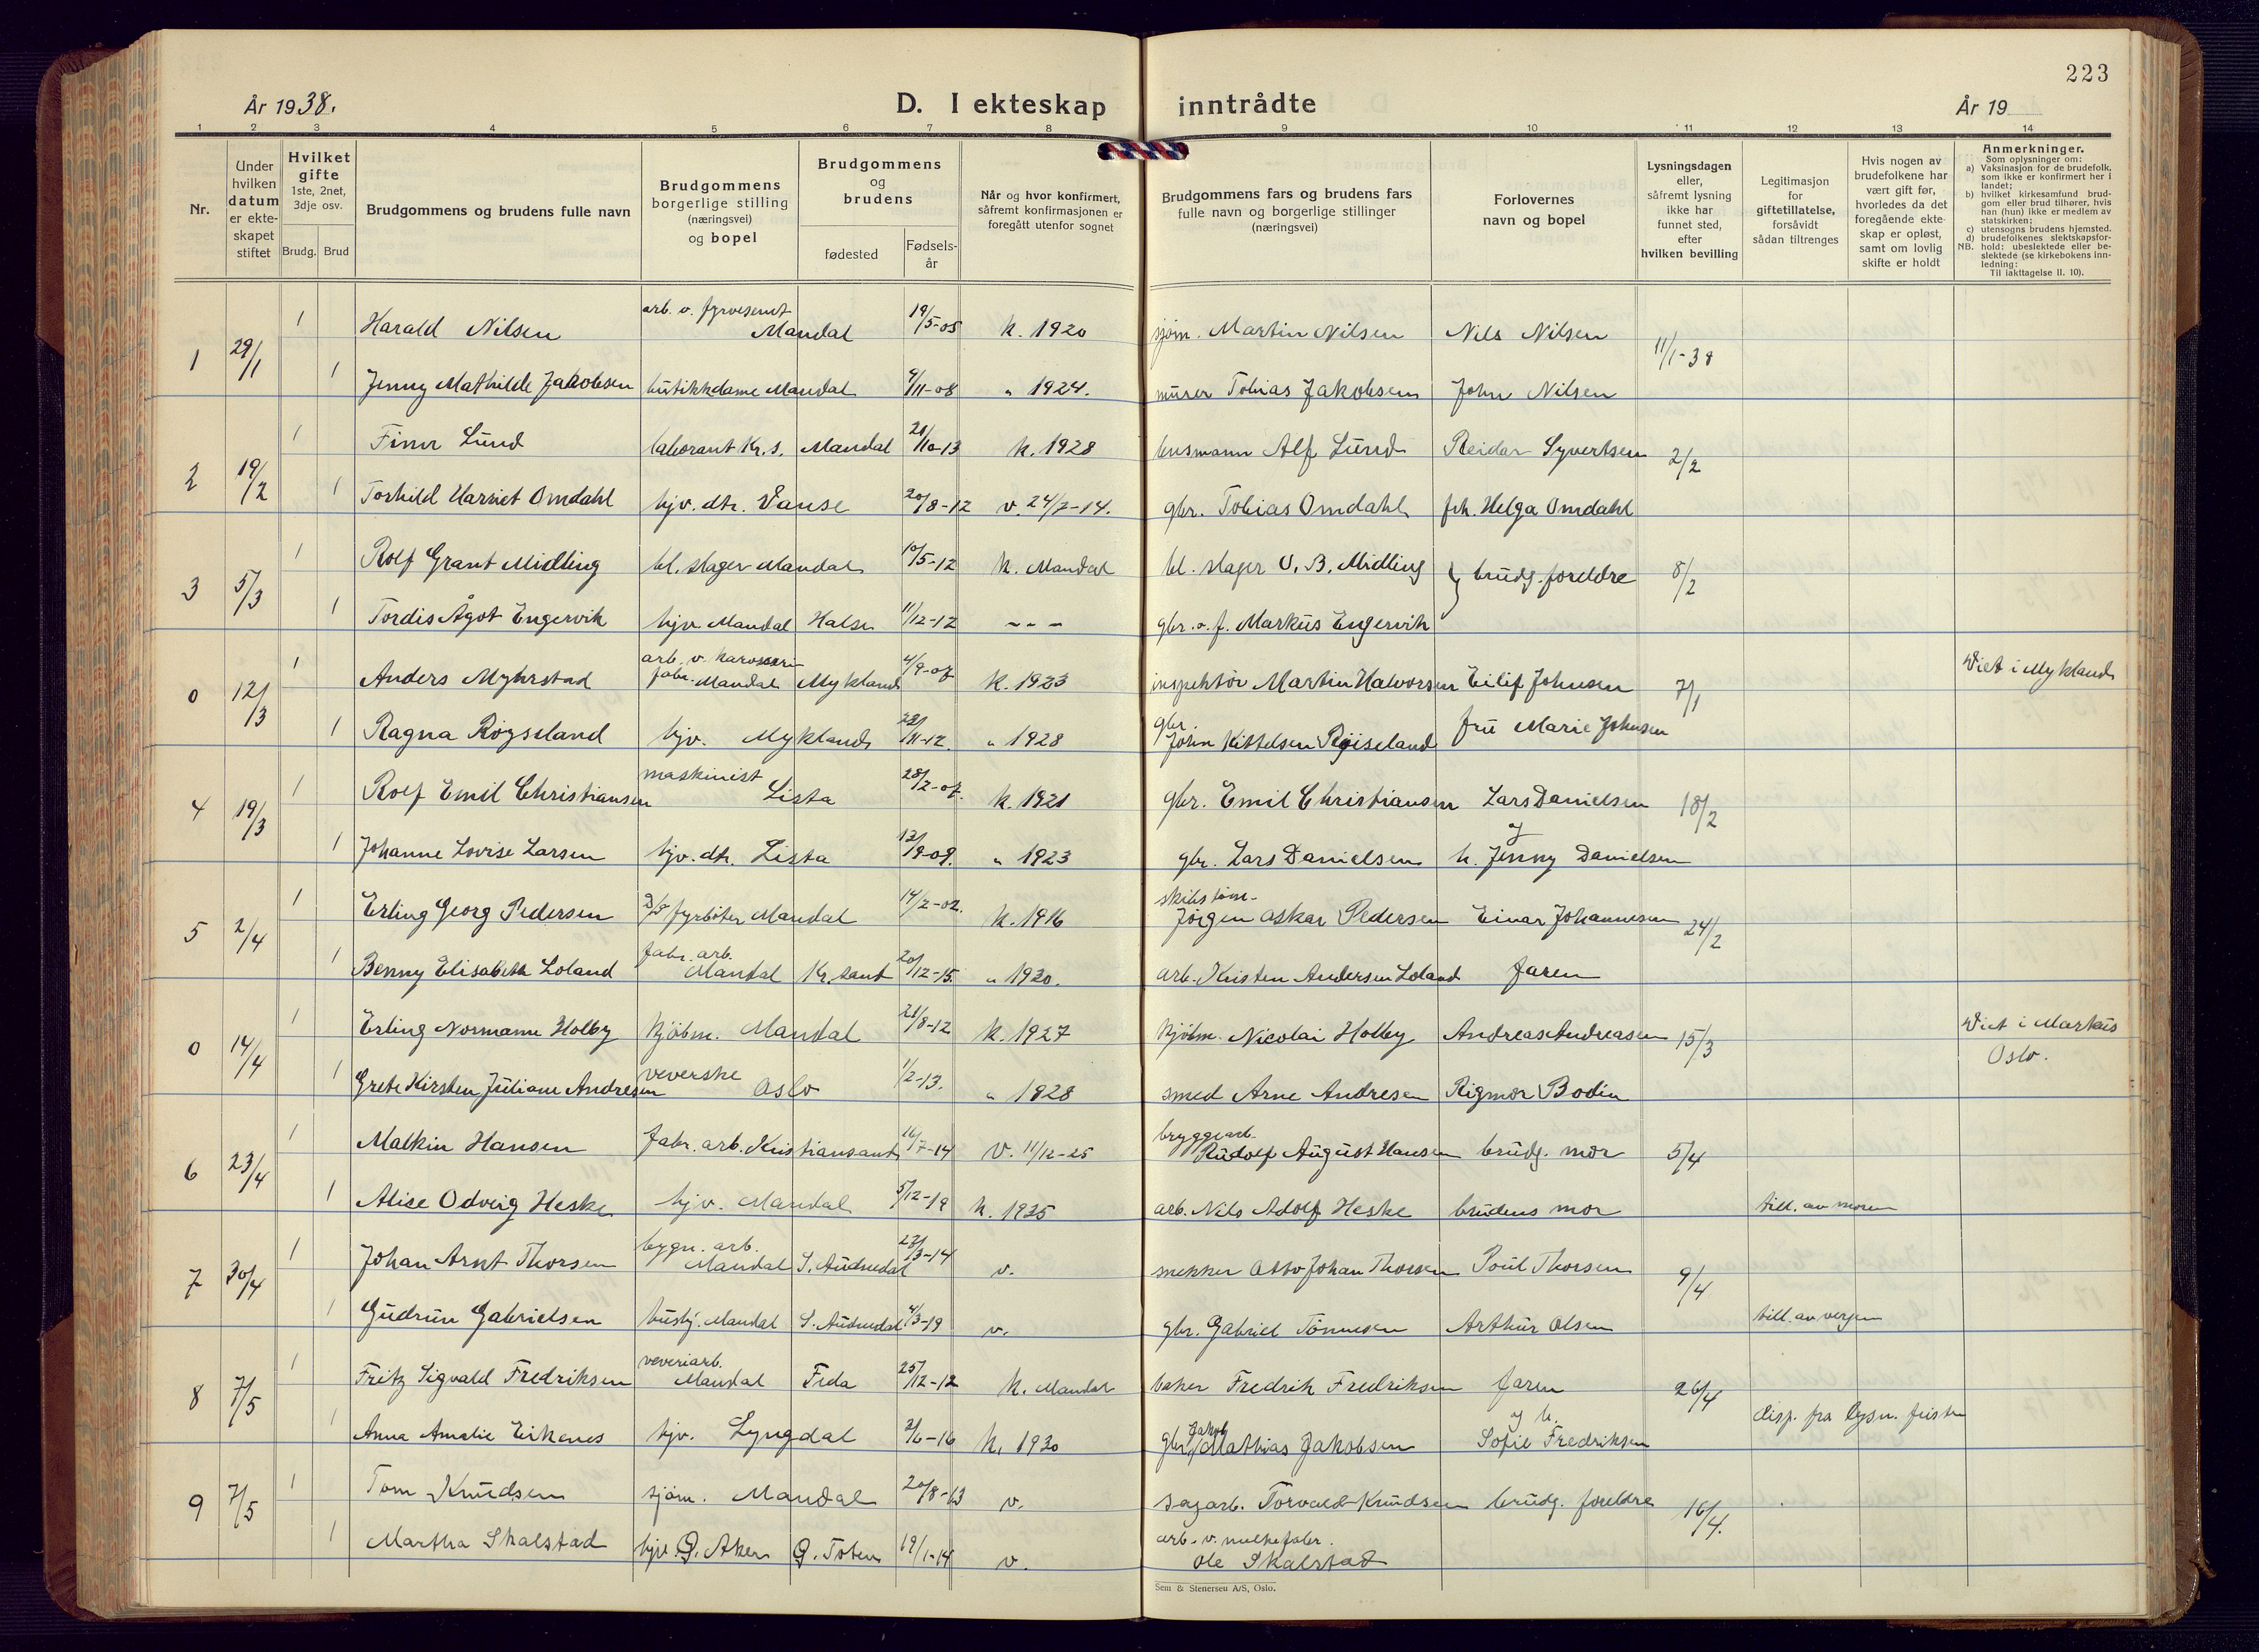 223
År 1938.
D. I ekteskap inntrådte
År 19
1 2 3 4 5 6 7 8 9 10 11 12 13 14
Nr.
Under hvilken datum er ekteskapet stiftet
Hvilket gifte 1ste, 2net, 3dje osv.
Brudg. Brud
Brudgommens og brudens fulle navn
Brudgommens borgerlige stilling (næringsvei) og bopel
Brudgommens og brudens
fødested
Fødsels-år
Når og hvor konfirmert, såfremt konfirmasjonen er foregått utenfor sognet
Brudgommens fars og brudens fars fulle navn og borgerlige stillinger (næringsvei)
Forlovernes navn og bopel
Lysningsdagen eller, såfremt lysning ikke har funnet sted, efter hvilken bevilling
Legitimasjon for giftetillatelse, forsåvidt sådan tiltrenges
Hvis nogen av brudefolkene har vært gift før, hvorledes da det foregående ekteskap er opløst, samt om lovlig skifte er holdt
Anmerkninger.
Som oplysninger om:
a) Vaksinasjon for de brudefolk, som ikke er konfirmert her i landet;
b) hvilket kirkesamfund brudgom eller brud tilhører, hvis han (hun) ikke er medlem av statskirken;
c) utensogns brudens hjemsted.
d) brudefolkenes slektskapsforhold: ubeslektede eller beslektede (se kirkebokens innledning:
NB.
Til iakttagelse II. 10).
1 29/1 1 Harald Nilsen arb. v. fyrvesenet Mandal 19/5-05 k. 1920 sjøm. Martin Nilsen Nils Nilsen 11/1-38
1 Jenny Mathilde Jakobsen butikkdame Mandal 9/11-08 " 1924. murer Tobias Jakobsen John Nilsen
2 19/2 1 Finn Lund laborant Kr.s. Mandal 21/10-13 k. 1928 lensmann Alf Lund Reidar Syvertsen 2/2
1 Torhild Harriet Omdahl hjv. dtr. Vanse 20/8-12 v. 24/7-14. gbr. Tobias Omdahl frk. Helga Omdahl
3 5/3 1 Rolf Grant Midling bl. slager Mandal 10/5-12 k. Mandal bl. slager O. B. Midling } brudg. foreldre 8/2
1 Tordis Ågot Engervik hjv Mandal Halse 11/12-12 - - - gbr. o. f. Markus Engervik
0 12/3 1 Anders Myhrstad arb. v. karosseri fabr. Mandal Mykland 4/9-07 k. 1923 inspektör Martin Halvorsen Eilif Johnsen 7/1 Viet i Mykland
1 Ragna Röysland hjv. Mykland 22/11-12. " 1928 gbr. John Kittelsen Röiseland fru Marie Johnsen
4 19/3 1 Rolf Emil Christiansen maskinist Lista 28/2-07. k. 1921 gbr. Emil Christiansen Lars Danielsen 18/2
1 Johanne Lovise Larsen hjv. dtr. Lista 13/9-09. " 1923 gbr. Lars Danielsen og h. Jenny Danielsen
5 2/4 1 Erling Georg Pedersen fyrböter Mandal 14/2-02. k. 1916 skibstöm. Jörgen Oskar Pedersen Einar Johannesen 24/2
1 Benny Elisabeth Loland fabr. arb. Mandal Kr.sand 20/12-15. " 1930. arb. Kristen Andersen Loland faren
0 14/4 1 Erling Normann Holby kjöbm. Mandal 21/8-12 k. 1927 kjöbm. Nicolai Holby Andreas Andreasen 15/3 Viet i Markus Oslo.
1 Grete Kirsten Juliane Andresen veverske Oslo 1/2-13. " 1928 smed Arne Andresen Rigmor Bodin
6 23/4 1 Malkin Hansen fabr. arb. Kristiansand 16/7-14 v. 11/12-25 bryggearb. Rudolf August Hansen brudg. mor 5/4
1 Alise Odveig Heske hjv. Mandal 5/12-19 k. 1935 arb. Nils Adolf Heske brudens mor till. av moren
7 30/4 1 Johan Arnt Thorsen bygn. arb. Mandal S. Audnedal 23/3-14 v. snekker Otto Johan Thorsen Poul Thorsen 9/4
1 Gudrun Gabrielsen hushj. Mandal S. Audnedal 4/3-19 v. gbr. Gabriel Tönnesen Arthur Olsen till. av vergen
8 7/5 1 Fritz Sigvald Fredriksen veveriarb. Mandal Feda 25/12-12 k. Mandal baker Fredrik Fredriksen faren 26/4
1 Anna Amalie Eikenes hjv. Lyngdal 2/6-16 k. 1930 gbr. Jakob Mathias Jakobsen og h. Sofie Fredriksen disp. fra lysn. fristen
9 7/5 1 Tom Knudsen sjöm. Mandal 20/8-13 v. sagarb. Torvald Knudsen brudg. foreldre 16/4.
1 Martha Skalstad hjv. Ö. Aker Ö. Toten 19/1-14 v. arb. v. melkefabr. Ole Skalstad
Sem & Stenersen A/S, Oslo.